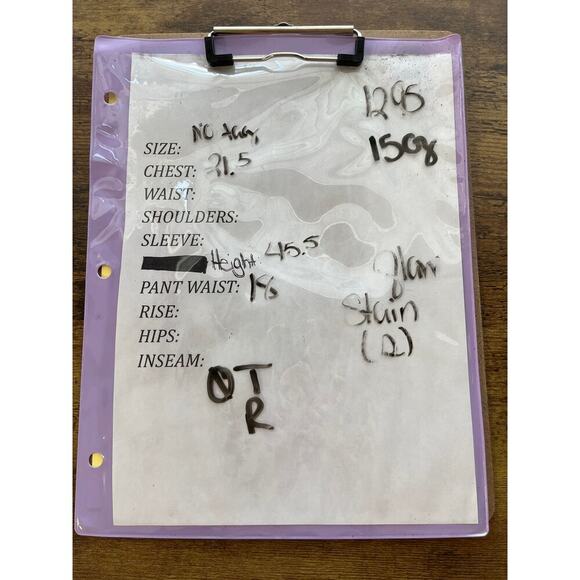 1295
150g
SIZE: NO tag
CHEST: 21.5
WAIST:
SHOULDERS:
SLEEVE:
Height: 45.5
PANT WAIST: 18
RISE:
HIPS:
INSEAM:
flaw
Stain
T
R